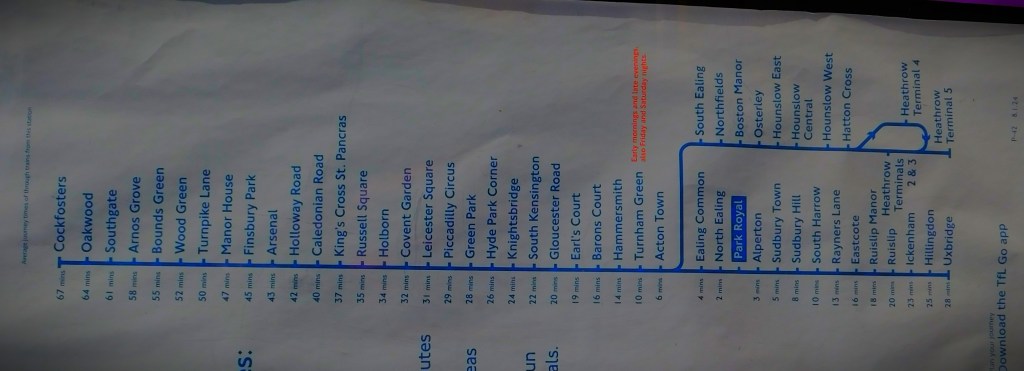 Average journey times of through trains from this station
67 mins Cockfosters
64 mins Oakwood
61 mins Southgate
58 mins Arnos Grove
55 mins Bounds Green
52 mins Wood Green
50 mins Turnpike Lane
47 mins Manor House
45 mins Finsbury Park
43 mins Arsenal
42 mins Holloway Road
40 mins Caledonian Road
37 mins King's Cross St. Pancras
35 mins Russell Square
34 mins Holborn
32 mins Covent Garden
31 mins Leicester Square
29 mins Piccadilly Circus
28 mins Green Park
26 mins Hyde Park Corner
24 mins Knightsbridge
22 mins South Kensington
20 mins Gloucester Road
19 mins Earl's Court
16 mins Barons Court
14 mins Hammersmith
10 mins Turnham Green
Early mornings and late evenings,
also Friday and Saturday nights.
6 mins Acton Town
4 mins Ealing Common
2 mins North Ealing
Park Royal
3 mins Alperton
5 mins Sudbury Town
8 mins Sudbury Hill
10 mins South Harrow
13 mins Rayners Lane
16 mins Eastcote
18 mins Ruislip Manor
20 mins Ruislip
23 mins Ickenham
25 mins Hillingdon
28 mins Uxbridge
South Ealing
Northfields
Boston Manor
Osterley
Hounslow East
Hounslow
Central
Hounslow West
Hatton Cross
Heathrow
Terminals
2 & 3
Heathrow
Terminal 4
Heathrow
Terminal 5
s:
utes
eas
un
als.
Download the TfL Go app